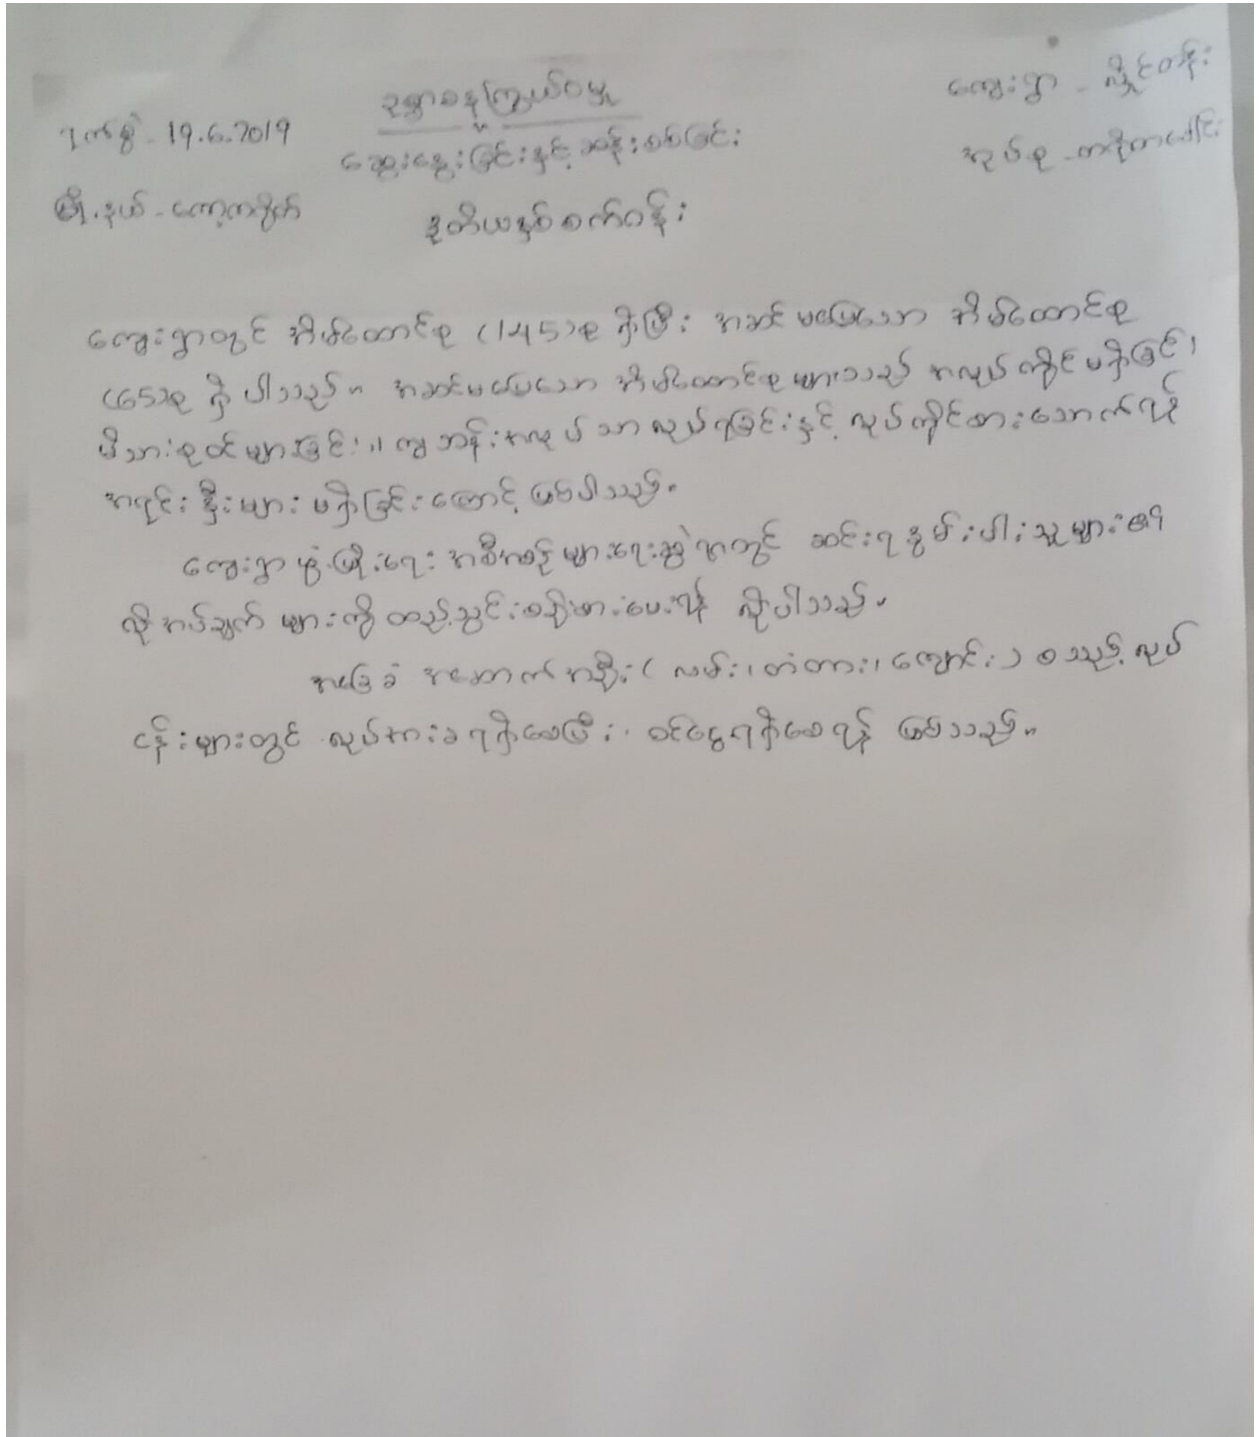 ဥစ္စာဓနကြွယ်ဝမှု
ကျေးရွာ - လှိုင်ဝန်း
ရက်စွဲ - 19.6.2019
ဆွေးနွေးခြင်းနှင့် ဆန်းစစ်ခြင်း
အုပ်စု -
မြို့နယ် - ကော့ကရိတ်
ဒုတိယနှစ်စက်ဝန်း
ကျေးရွာတွင် အိမ်ထောင်စု (145)စု ရှိပြီး အဆင်မပြေသော အိမ်ထောင်စု
(65)စု ရှိပါသည်။ အဆင်မပြေသော အိမ်ထောင်စုများသည် အလုပ်ကိုင်မရှိခြင်း၊
မိသားစုဝင်များခြင်း၊ ကျဘန်းအလုပ်သာလုပ်ရခြင်းနှင့် လုပ်ကိုင်စားသောက်ရန်
အရင်းနှီးများ မရှိခြင်းကြောင့် ဖြစ်ပါသည်။
ကျေးရွာဖွံ့ဖြိုးရေး အစီအစဉ်များရေးဆွဲရာတွင် ဆင်းရဲနွမ်းပါးသူများ၏
လိုအပ်ချက်များကို ထည့်သွင်းစဉ်းစားပေးရန် လိုပါသည်။
အခြေခံ အဆောက်အဦး (လမ်း၊ တံတား၊ ကျောင်း) စသည့် လုပ်
ငန်းများတွင် လုပ်အားခရရှိစေပြီး ဝင်ငွေရရှိစေရန် ဖြစ်သည်။